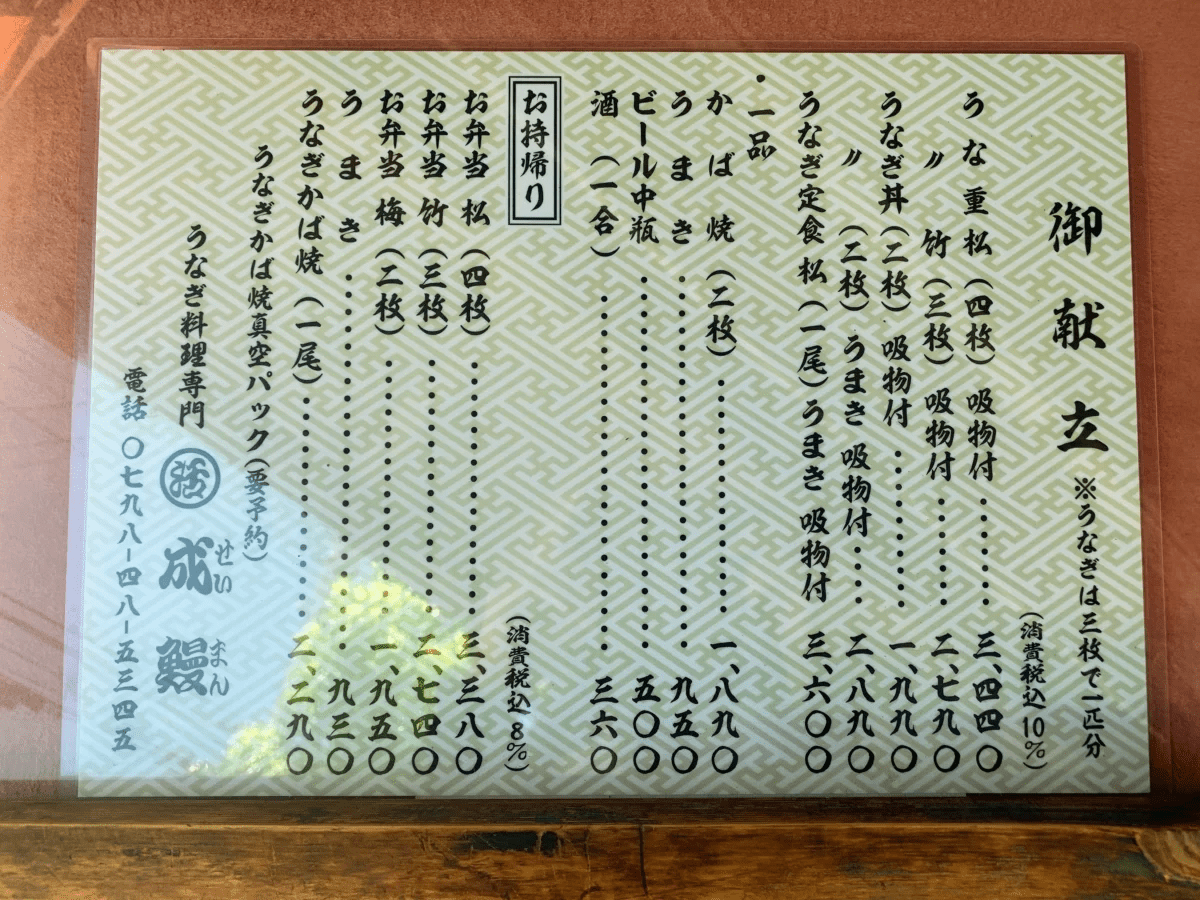 御献立 ※うなぎは三枚で一匹分
(消費税込10%)
うな重 松(四枚)吸物付……三、四四〇
〃 竹(三枚)吸物付……二、七九〇
うなぎ丼(二枚)吸物付……一、九九〇
〃(二枚)うまき 吸物付……二、八九〇
うなぎ定食 松(一尾)うまき 吸物付 三、六〇〇
・一品
かば焼(二枚)……一、八九〇
うまき……九五〇
ビール中瓶……五〇〇
酒(一合)……三六〇
お持帰り
(消費税込8%)
お弁当 松(四枚)……三、三八〇
お弁当 竹(三枚)……二、七四〇
お弁当 梅(二枚)……一、九五〇
うまき……九三〇
うなぎかば焼(一尾)……二、二九〇
うなぎかば焼真空パック(要予約)
うなぎ料理専門 活 成鰻
せい まん
電話 〇七九八-四八-五三四五